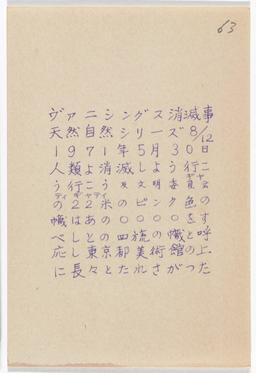 63
ヴァニシングス消滅事
天然自然シリーズ8/12
1971年5月30日
人類よ消滅しよう行こ
ギャ
う行こう反文明委員会
ティギャティ
の22米のピンク色の
幟はあの○○○○をす
べしとの四旒の幟と呼
応し東京都美術館の上
に長々とたれさがった